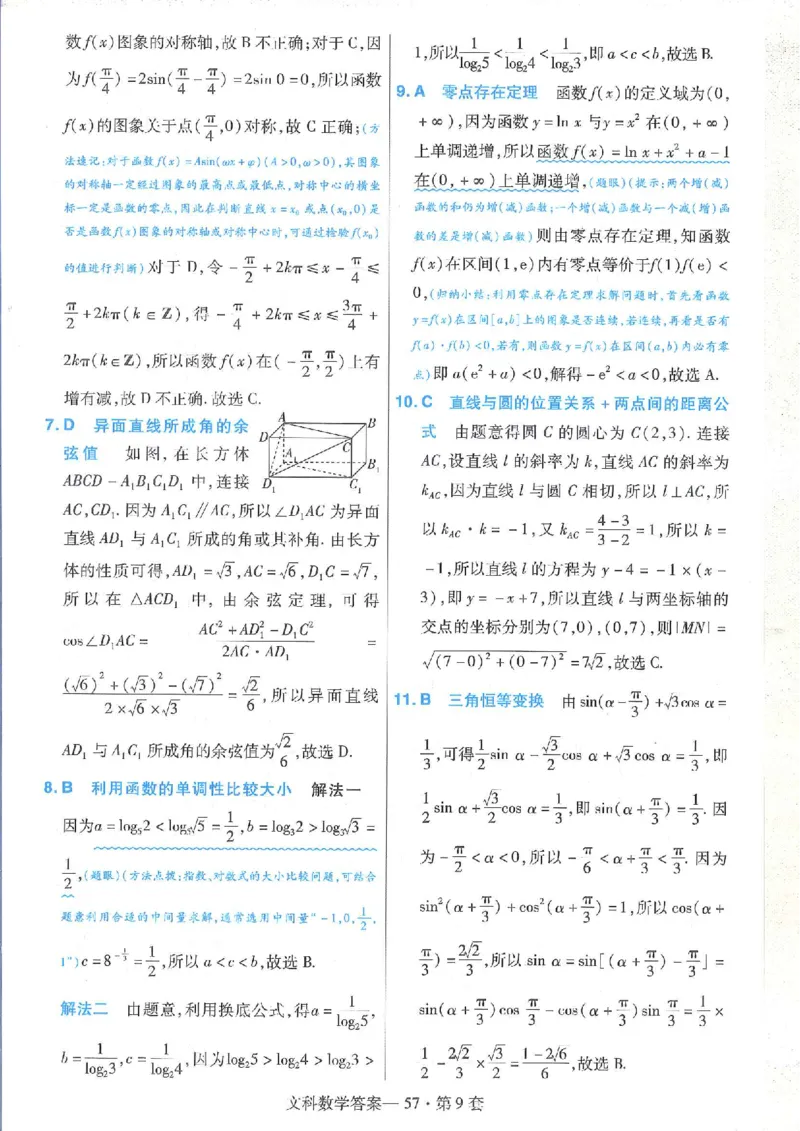 数f(x)图象的对称轴,故 B 不正确;对于 C,因
为f(π/4)=2sin(π/4-π/4)=2sin 0=0,所以函数
f(x)的图象关于点(π/4,0)对称,故 C 正确;(方
法速记:对于函数f(x)=Asin(ωx+φ)(A>0,ω>0),其图象
的对称轴一定经过图象的最高点或最低点,对称中心的横坐
标一定是函数的零点,因此在判断直线 x=x₀ 或点(x₀,0)是
否是函数f(x)图象的对称轴或对称中心时,可通过检验f(x₀)
的值进行判断)对于 D,令-π/2+2kπ≤x-π/4≤
π/2+2kπ(k∈Z),得-π/4+2kπ≤x≤3π/4+
2kπ(k∈Z),所以函数f(x)在(-π/2,π/2)上有
增有减,故 D 不正确.故选 C.
7.D 异面直线所成角的余
弦值 如图,在长方体
ABCD-A₁B₁C₁D₁ 中,连接
A
B
D
C
A₁
B₁
D₁
C₁
AC,CD₁.因为 A₁C₁∥AC,所以∠D₁AC 为异面
直线 AD₁ 与 A₁C₁ 所成的角或其补角.由长方
体的性质可得,AD₁=√3,AC=√6,D₁C=√7,
所以在△ACD₁ 中,由余弦定理,可得
cos∠D₁AC=(AC²+AD₁²-D₁C²)/(2AC·AD₁)=
((√6)²+(√3)²-(√7)²)/(2×√6×√3)=√2/6,所以异面直线
AD₁ 与 A₁C₁ 所成角的余弦值为√2/6,故选 D.
8.B 利用函数的单调性比较大小 解法一
因为a=log₅2<log₅√5=1/2,b=log₃2>log₃√3=
1/2,(题眼)(方法点拨:指数、对数式的大小比较问题,可结合
题意利用合适的中间量求解,通常选用中间量“-1,0,1/2,
1”)c=8^(-1/3)=1/2,所以 a<c<b,故选 B.
解法二 由题意,利用换底公式,得a=1/log₂5,
b=1/log₂3,c=1/log₂4,因为log₂5>log₂4>log₂3>
1,所以1/log₂5<1/log₂4<1/log₂3,即 a<c<b,故选 B.
9.A 零点存在定理 函数f(x)的定义域为(0,
+∞),因为函数 y=ln x 与y=x² 在(0,+∞)
上单调递增,所以函数f(x)=ln x+x²+a-1
在(0,+∞)上单调递增,(题眼)(提示:两个增(减)
函数的和仍为增(减)函数;一个增(减)函数与一个减(增)函
数的差是增(减)函数)则由零点存在定理,知函数
f(x)在区间(1,e)内有零点等价于f(1)f(e)<
0,(归纳小结:利用零点存在定理求解问题时,首先看函数
y=f(x)在区间[a,b]上的图象是否连续,若连续,再看是否有
f(a)·f(b)<0,若有,则函数 y=f(x)在区间(a,b)内必有零
点)即 a(e²+a)<0,解得-e²<a<0,故选 A.
10.C 直线与圆的位置关系+两点间的距离公
式 由题意得圆 C 的圆心为 C(2,3).连接
AC,设直线 l 的斜率为 k,直线 AC 的斜率为
k_AC,因为直线 l 与圆 C 相切,所以 l⊥AC,所
以 k_AC·k=-1,又 k_AC=(4-3)/(3-2)=1,所以 k=
-1,所以直线 l 的方程为 y-4=-1×(x-
3),即 y=-x+7,所以直线 l 与两坐标轴的
交点的坐标分别为(7,0),(0,7),则|MN|=
√((7-0)²+(0-7)²)=7√2,故选 C.
11.B 三角恒等变换 由 sin(α-π/3)+√3cos α=
1/3,可得1/2sin α-√3/2cos α+√3cos α=1/3,即
1/2sin α+√3/2cos α=1/3,即 sin(α+π/3)=1/3.因
为-π/2<α<0,所以-π/6<α+π/3<π/3.因为
sin²(α+π/3)+cos²(α+π/3)=1,所以 cos(α+
π/3)=2√2/3,所以 sin α=sin[(α+π/3)-π/3]=
sin(α+π/3)cos π/3-cos(α+π/3)sin π/3=1/3×
1/2-2√2/3×√3/2=(1-2√6)/6,故选 B.
文科数学答案—57·第 9 套